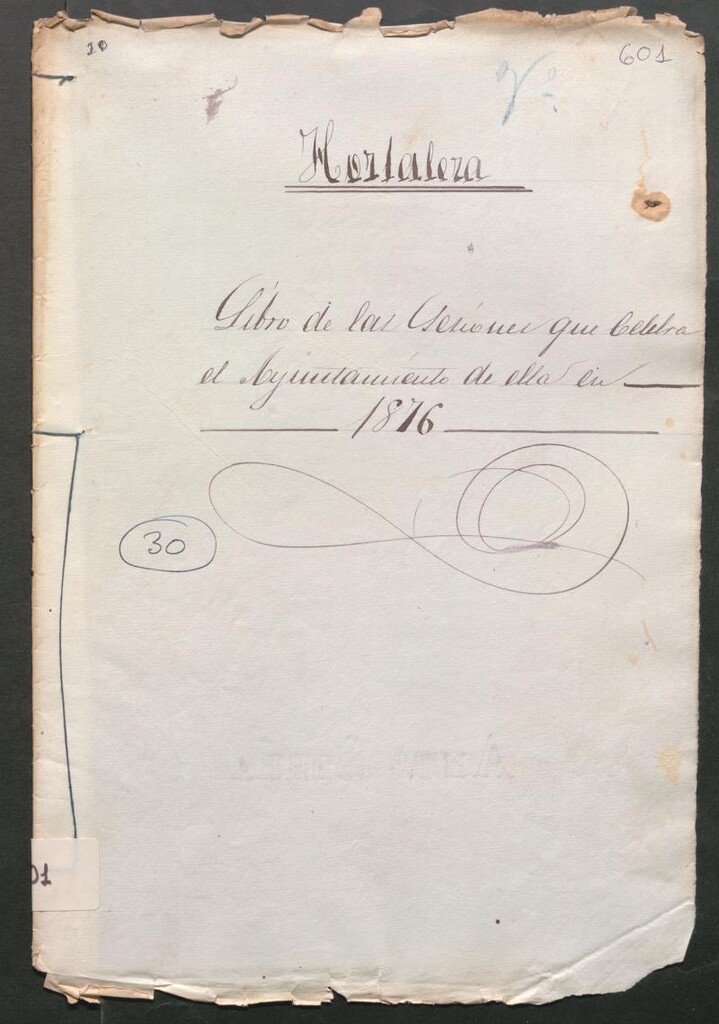 20
601
Hortaleza
Libro de las Sesiones que Celebra
el Ayuntamiento de ella en
1876
30
01